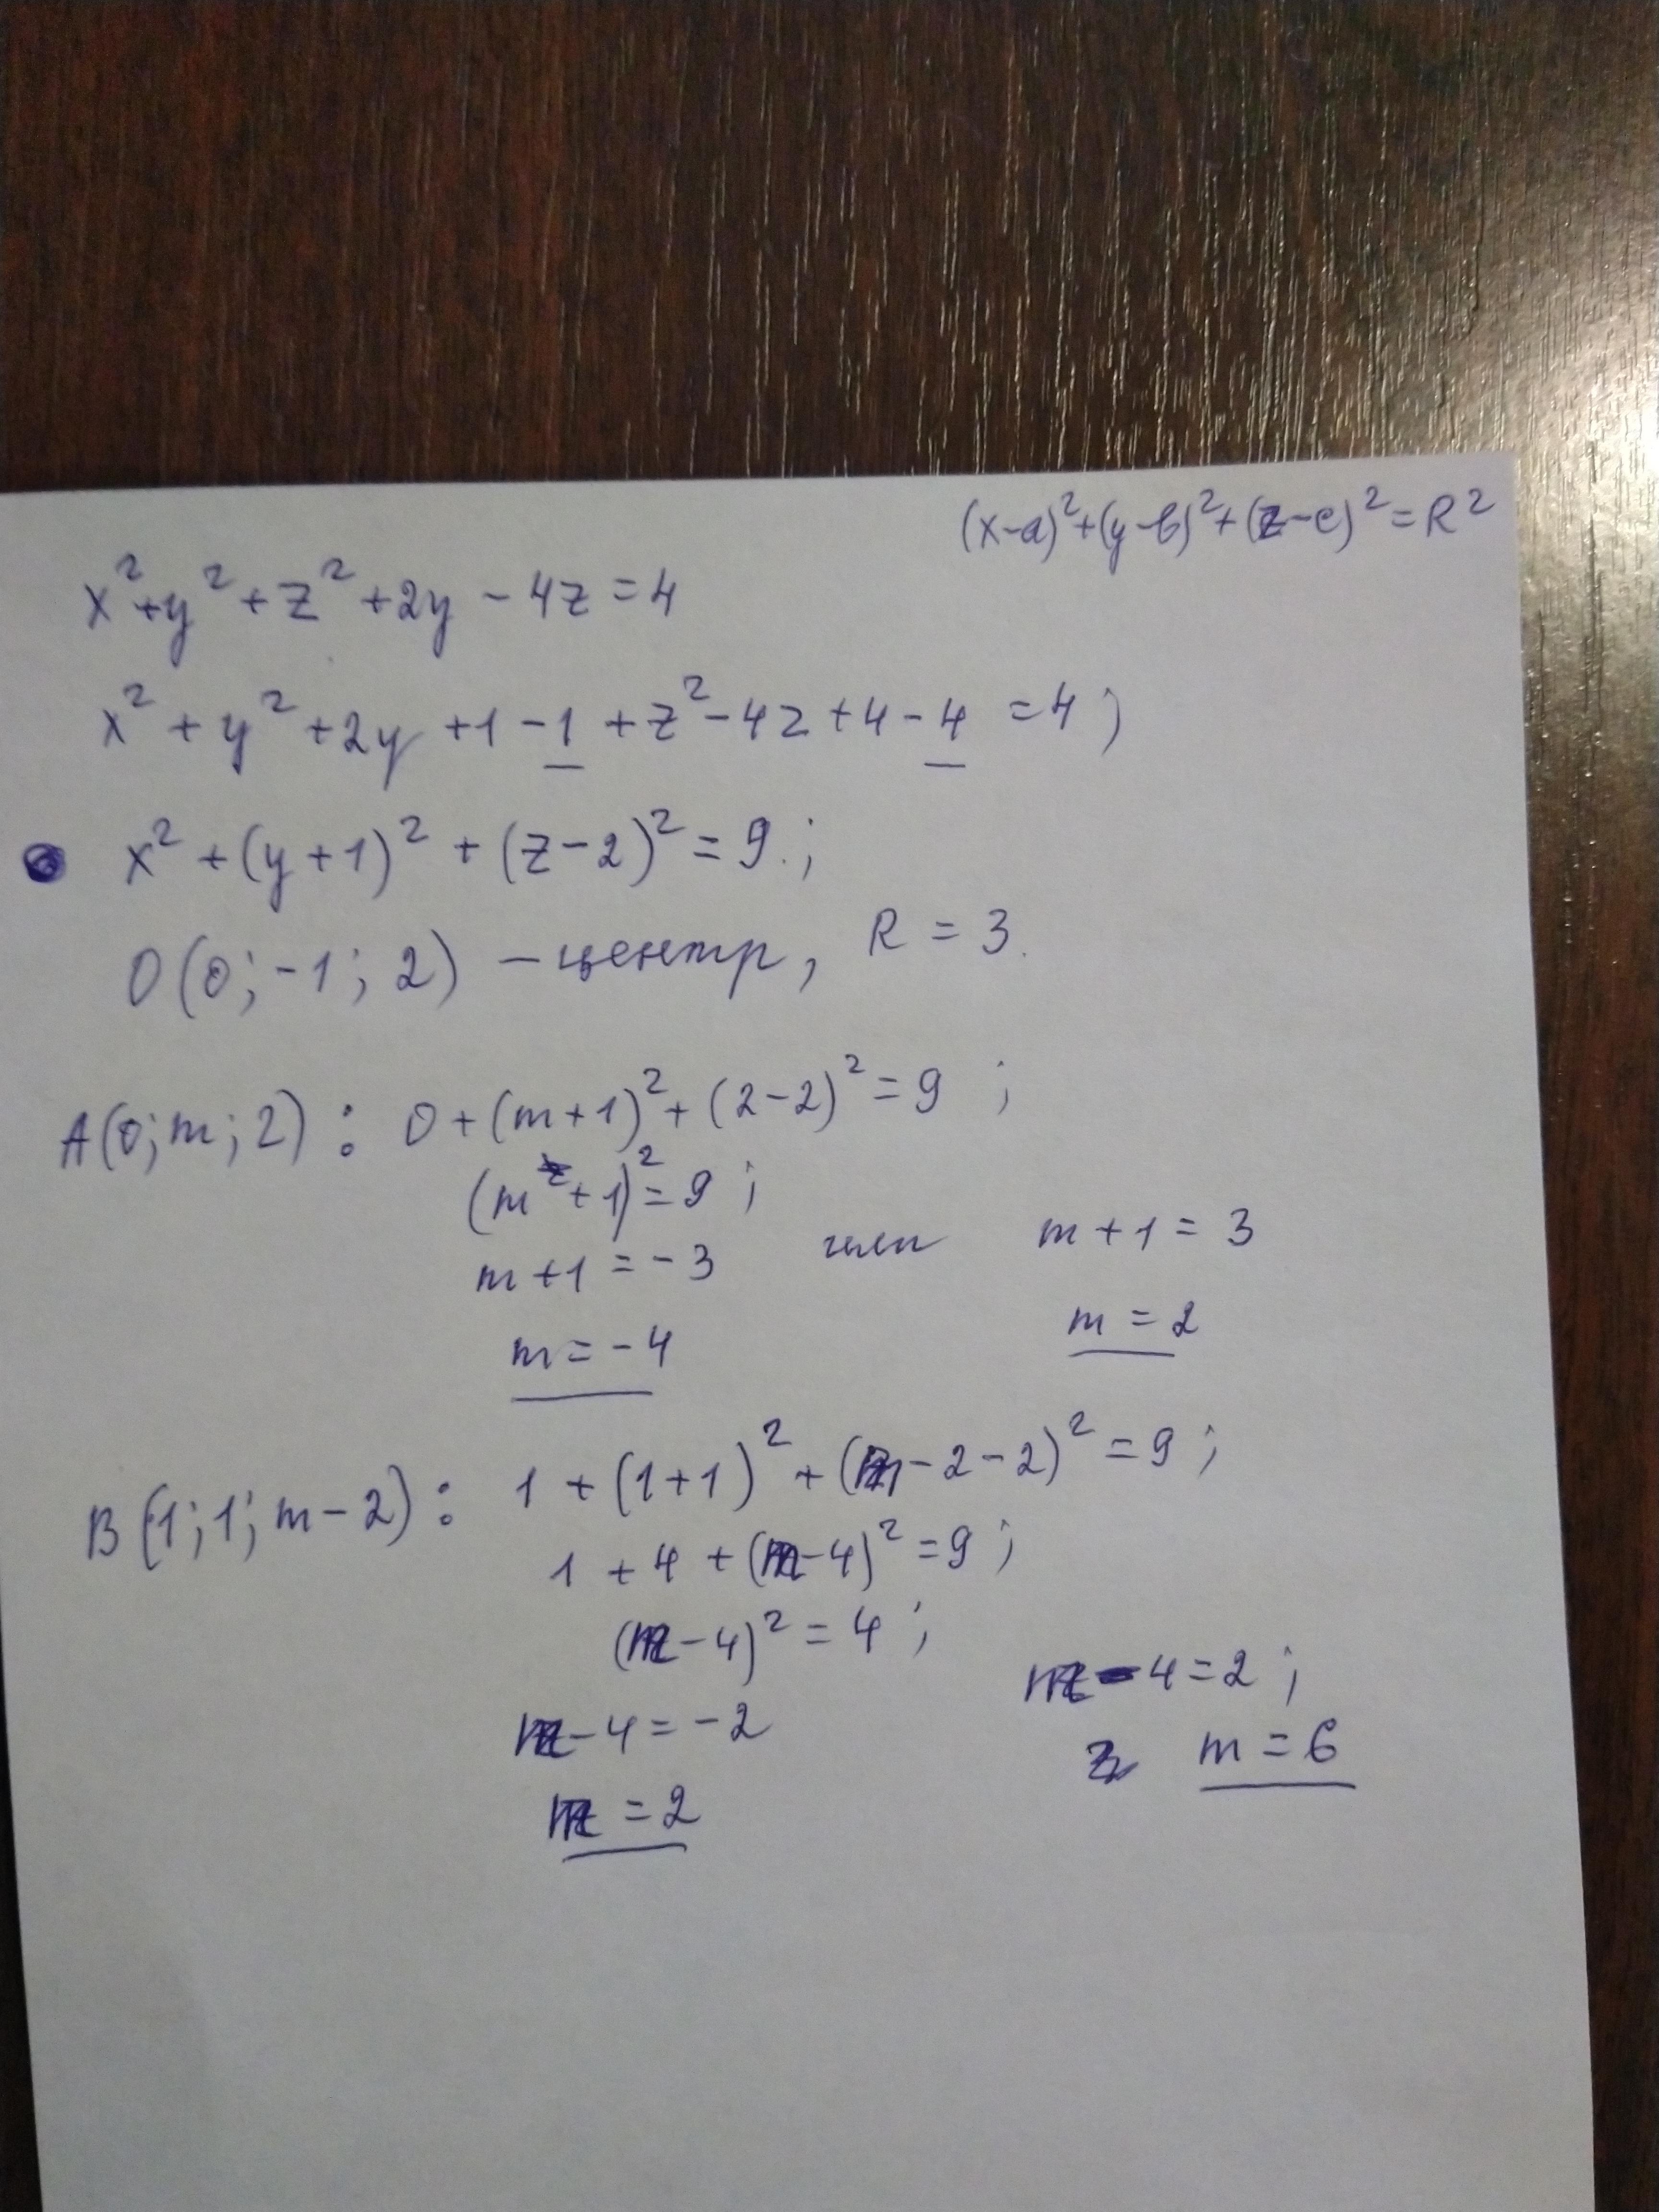 (x-a)²+(y-b)²+(z-c)²=R²
x²+y²+z²+2y-4z=4
x²+y²+2y+1-1+z²-4z+4-4=4;
x²+(y+1)²+(z-2)²=9.;
O(0;-1;2) - центр, R=3.
A(0;m;2): 0+(m+1)²+(2-2)²=9;
(m+1)²=9;
m+1=-3 или m+1=3
m=-4 m=2
B(1;1;m-2): 1+(1+1)²+(m-2-2)²=9;
1+4+(m-4)²=9;
(m-4)²=4;
m-4=-2 m-4=2;
m=2 m=6